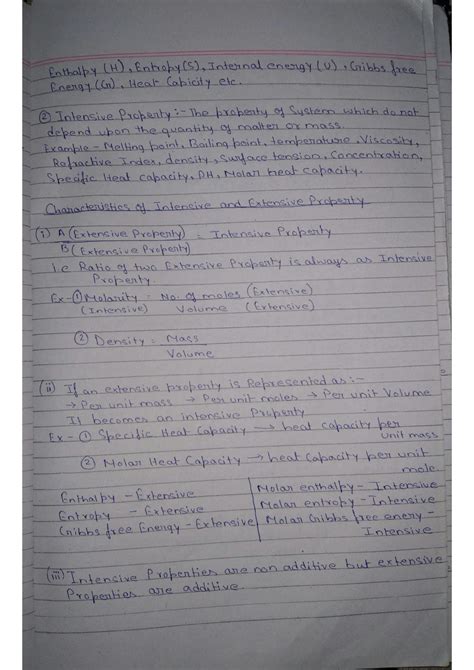 Enthalpy (H), Entropy(S), Internal energy (U), Gibbs free
Energy (G), Heat Capicity etc.
② Intensive Property :- The property of System which do not
depend upon the quantity of matter or mass.
Example - Melting point, Boiling point, temperature, Viscosity,
Refractive Index, density, Surface tension, Concentration,
Specific Heat capacity, PH, Molar heat capacity.
Characteristics of Intensive and Extensive Property
(i) A (Extensive Property) = Intensive Property
B (Extensive Property)
i.e Ratio of two Extensive Property is always as Intensive
Property.
Ex - ① Molarity = No. of moles (Extensive)
(Intensive) Volume (Extensive)
② Density = Mass
Volume
(ii) If an extensive property is Represented as :-
→ Per unit mass → Per unit moles → Per unit Volume
It becomes an intensive Property
Ex - ① Specific Heat Capacity → heat capacity per
unit mass
② Molar Heat Capacity → heat Capacity per unit
mole.
Enthalpy - Extensive Molar enthalpy - Intensive
Entropy - Extensive Molar entropy - Intensive
Gibbs free Energy - Extensive Molar Gibbs free enery -
Intensive
(iii) Intensive Properties are non additive but extensive
Properties are additive.